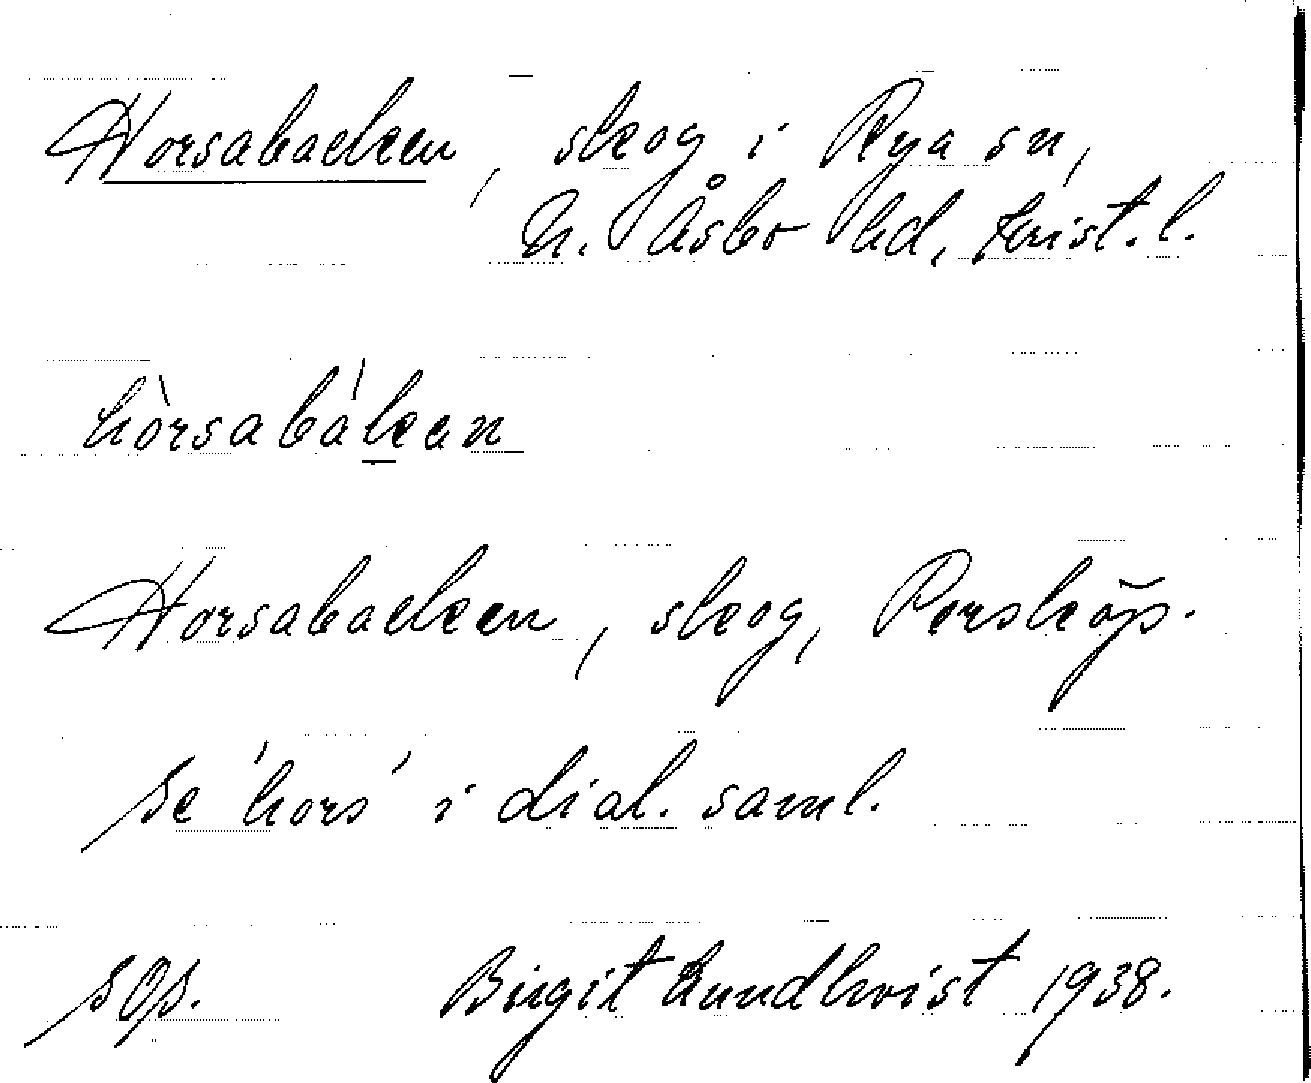 Horsabacken, skog i Rya sn,
N. Åsbo hd, Krist. l.
hòrsabákan
Horsabacken, skog, Perskõp.
Se 'hors' i dial. saml.
sOp. Birgit Lundkvist 1938.